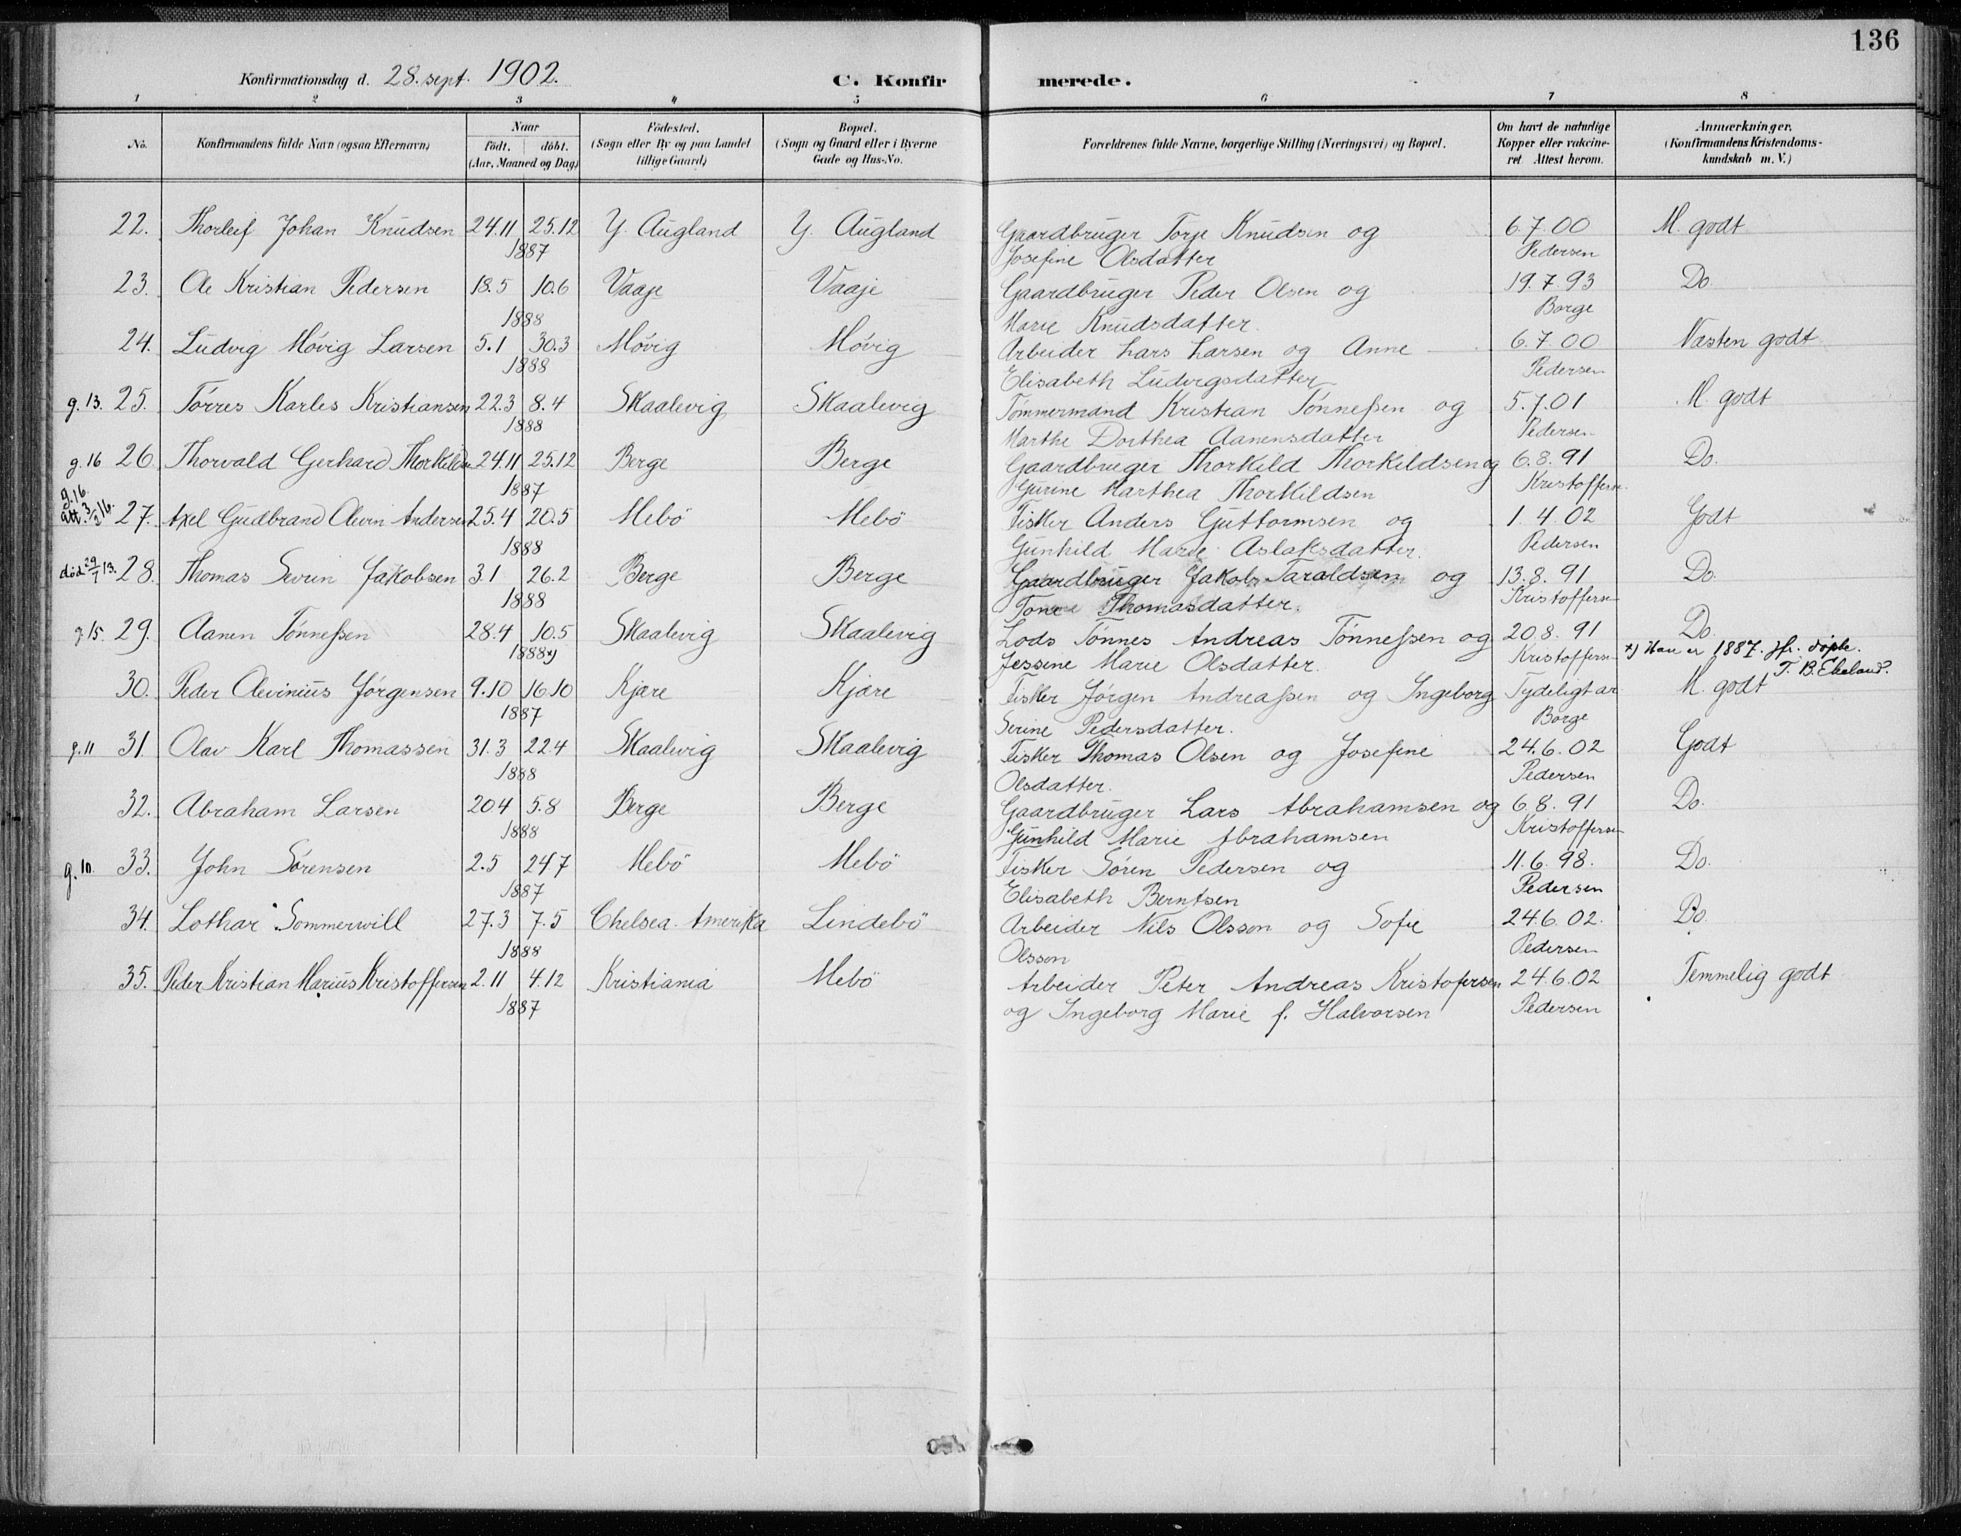 136
Konfirmationsdag d. 28. sept. 1902. C. Konfirmerede.
1 2 3 4 5 6 7 8
No. Konfirmandens fulde Navn (ogsaa Efternavn) Naar født. døbt. (Aar, Maaned og Dag) Fødested. (Sogn eller By og paa Landet tillige Gaard) Bopæl. (Sogn og Gaard eller i Byerne Gade og Hus-No. Forældrenes fulde Navne, borgerlige Stilling (Næringsvei) og Bopæl. Om havt de naturlige Kopper eller vakcineret. Attest herom. Anmærkninger. (Konfirmandens Kristendomskundskab m. V.)
22. Thorleif Johan Knudsen 24.11 25.12 Y. Augland Y. Augland Gaardbruger Torje Knudsen og 6.7.00 M. godt
1887 Josefine Olsdatter Pedersen
23. Ole Kristian Pedersen 18.5 10.6 Vaaje Vaaje Gaardbruger Peder Olsen og 19.7.93 Do.
1888 Marie Knudsdatter. Borge
24. Ludvig Møvig Larsen 5.1 30.3 Møvig Møvig Arbeider Lars Larsen og Anne 6.7.00 Næsten godt
1888 Elisabeth Ludvigsdatter Pedersen
g. 13. 25. Tørres Karles Kristiansen 22.3 8.4 Skaalevig Skaalevig Tømmermand Kristian Tønneßen og 5.7.01 M. godt
1888 Marthe Dorthea Aanensdatter Pedersen
g. 16 26. Thorvald Gerhard Thorkildsen 24.11 25.12 Berge Berge Gaardbruger Thorkild Thorkildsen og 6.8.91 Do.
1887 Gurine Marthea Thorkildsen Kristoffersen
g. 16. att. 3/2 16. 27. Axel Gudbrand Olevin Andersen 25.4 20.5 Mebö Mebö Fisker Anders Guttormsen og 1.4.02 Godt
1888 Gunhild Marie Aslaksdatter. Pedersen
død 29/7 13. 28. Thomas Severin Jakobsen 3.1 26.2 Berge Berge Gaardbruger Jakob Taraldsen og 13.8.91 Do.
1888 Tone Thomasdatter. Kristoffersen
g. 15. 29. Aanen Tønneßen 28.4 10.5 Skaalevig Skaalevig Lods Tønnes Andreas Tønneßen og 20.8.91 Do.
1888 x) Jessine Marie Olsdatter. Kristoffersen x) Han er 1887. jfr. døpte. T. B. Ekeland.
30. Peder Olevinius Jørgensen 9.10 16.10 Kjære Kjære Fisker Jørgen Andreaßen og Ingeborg Tydeligt ar M. godt
1887 Serine Pedersdatter. Borge
g. 11 31. Olav Karl Thomassen 31.3 22.4 Skaalevig Skaalevig Fisker Thomas Olsen og Josefine 24.6.02 Godt
1888 Olsdatter. Pedersen
32. Abraham Larsen 20.4 5.8 Berge Berge Gaardbruger Lars Abrahamsen og 6.8.91 Do.
1888 Gunhild Marie Abrahamsen Kristoffersen
g. 10. 33. John Sørensen 2.5 24.7 Mebö Mebö Fisker Søren Pedersen og 11.6.98. Do.
1887 Elisabeth Berntsen Pedersen
34. Lothar Sommerwill 27.3 7.5 Chelsea. Amerika Lindebö Arbeider Nils Olsson og Sofie 24.6.02. Do.
1888 Olsson Pedersen
35. Peder Kristian Marius Kristoffersen 2.11 4.12 Kristiania Mebö Arbeider Peter Andreas Kristofersen 24.6.02 Temmelig godt
1887 og Ingeborg Marie f. Halvorsen Pedersen